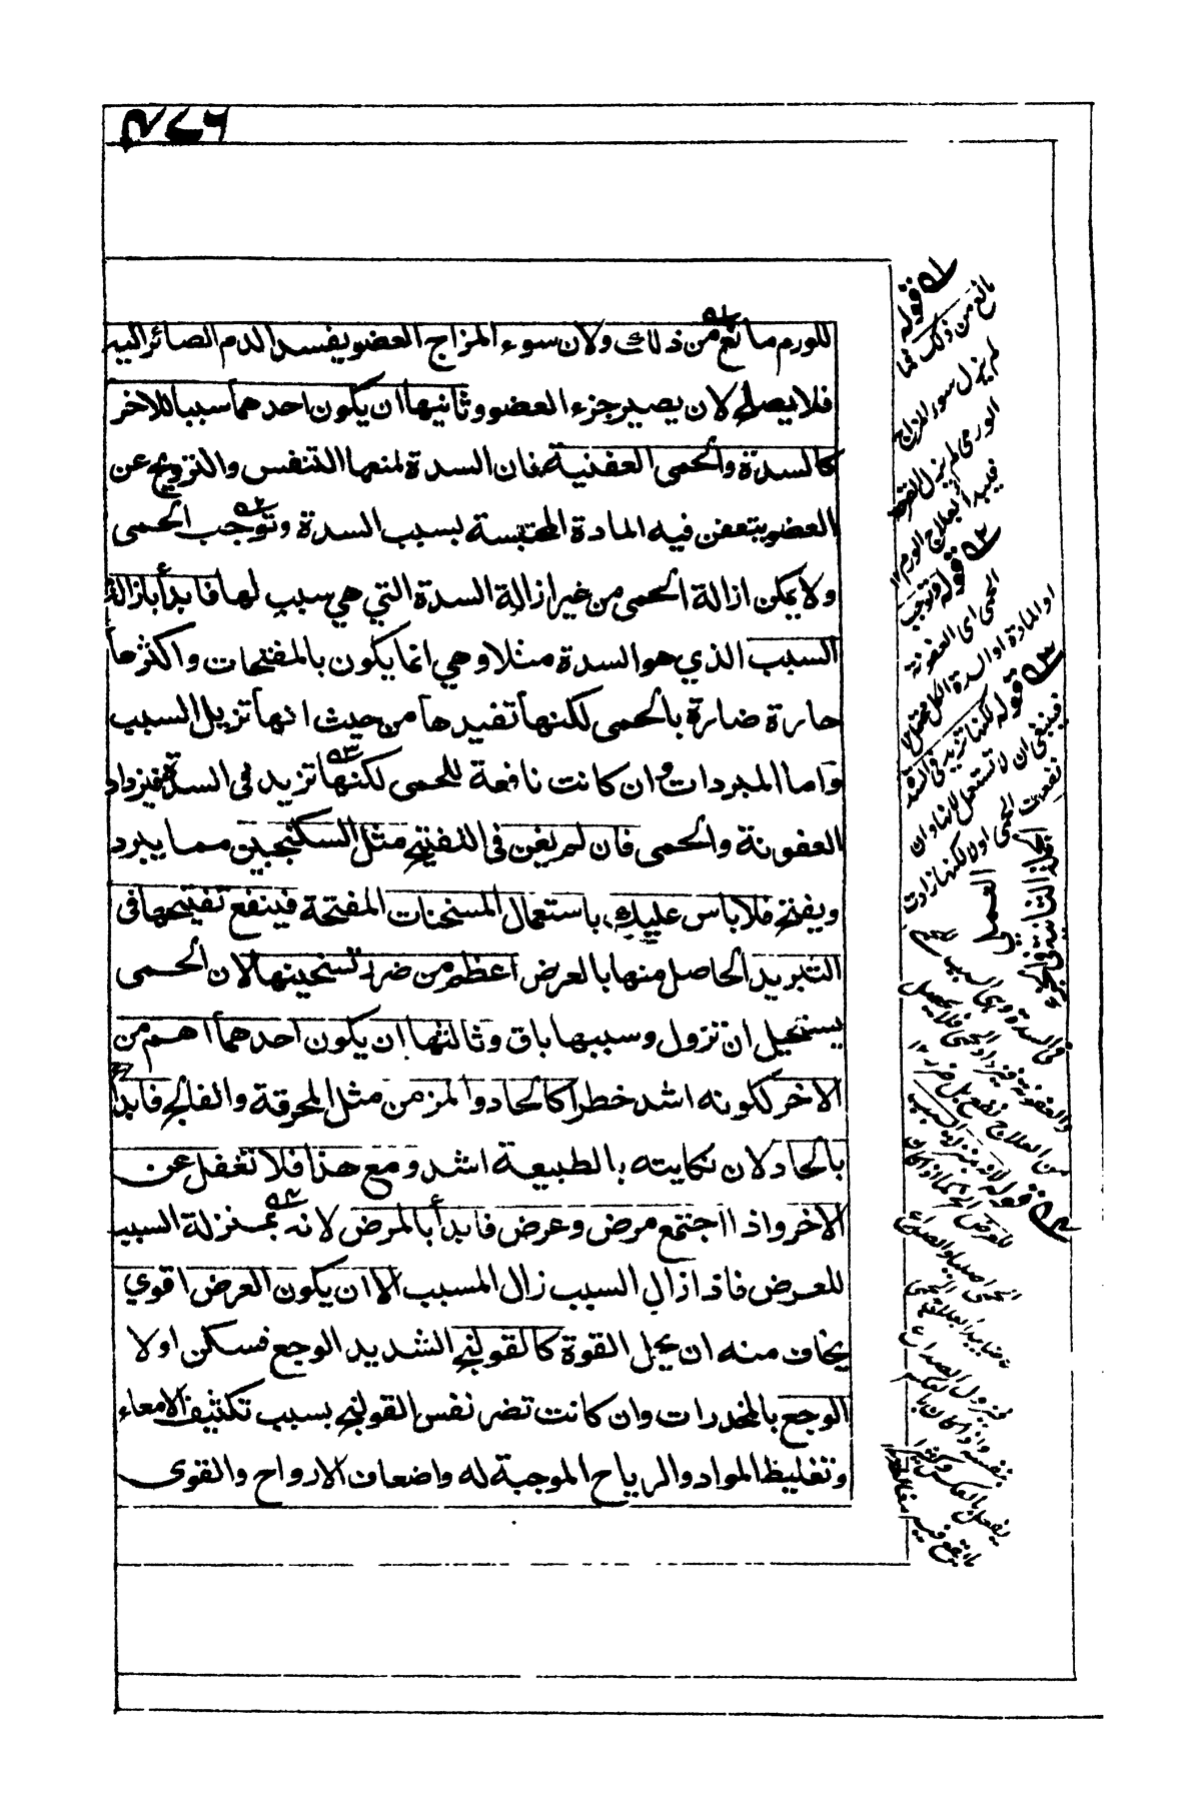 ٤٧٦
للورم مانع من ذلك ولان سوء المزاج العضو يفسد الدم الصائر اليه
فلا يصلح لان يصير جزء العضو وثانيها ان يكون احدهما سببا للاخر
كالسدة والحمى العفنية فان السدة لمنعها التنفس والترويح عن
العضو يتعفن فيه المادة المحتبسة بسبب السدة وتوجب الحمى
ولا يمكن ازالة الحمى من غير ازالة السدة التي هي سبب لها فابدأ بازالة
السبب الذي هو السدة مثلا وهي انما يكون بالمفتحات واكثرها
حارة ضارة بالحمى لكنها تفيدها من حيث انها تزيل السبب
واما المبردات وان كانت نافعة للحمى لكنها تزيد في السدة فيزداد
العفونة والحمى فان لم يغن في التفتيح مثل السكنجبين مما يبرد
ويفتح فلا باس عليك باستعمال المسخنات المفتحة فينفع تفتيحها في
التبريد الحاصل منها بالعرض اعظم من ضرر تسخينها لان الحمى
يستحيل ان تزول وسببها باق وثالثها ان يكون احدهما اهم من
الاخر ككونه اشد خطرا كالحاد والمزمن مثل المحرقة والفالج فابدأ
بالحاد لان نكايته بالطبيعة اشد ومع هذا فلا تغفل عن
الاخر واذا اجتمع مرض وعرض فابدأ بالمرض لانه بمنزلة السبب
للعرض فاذا زال السبب زال المسبب الا ان يكون العرض اقوي
يخاف منه ان يحل القوة كالقولنج الشديد الوجع فسكن اولا
الوجع بالمخدرات وان كانت تضر نفس القولنج بسبب تكثيف الامعاء
وتغليظ المواد والرياح الموجبة له واضعاف الارواح والقوى
قوله
مانع من ذلك فما
لم يزل سوء المزاج
الورمي لم يزل القرحة
فليبدأ بعلاج الورم ١٢
قوله وتوجب
الحمى اى العفونة
او المادة او السدة الكل محتمل ١٢
قوله لكنها تزيد في السدة
فينبغي ان لا تستعمل لانها وان
نفعت الحمى اولا لكنها زادت
في السدة وهي السبب
والعفونة فيزداد الحمى فلا يحصل
من العلاج نفع بل ضرر ١٢
قوله لانه بمنزلة السبب
للعرض